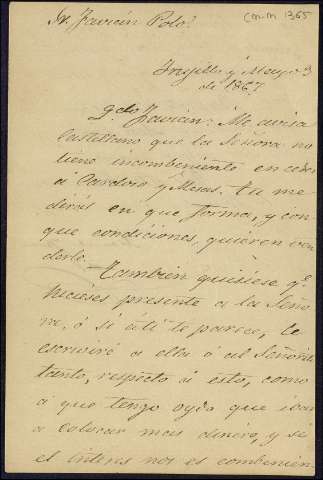 Sr. Javier Polo.
con.m 1365
Trujillo y Mayo 3
de 1867
Qdo Javier: Me avisa
Castellano que la Señora no
tiene incombeniente en ceder
á Cardoso y Mesas. tu me
dirás en que forma, y con
que condiciones, quieren ven
derlo.
También quisiese qe.
hicieses presente a la Seño
ra, ó si á ti te parece, le
escriviré a ella ó al Señorito
tanto, respecto á esto, como
á que tengo oydo que iban
a colocar mas dinero, y si
el interes nos es combenien